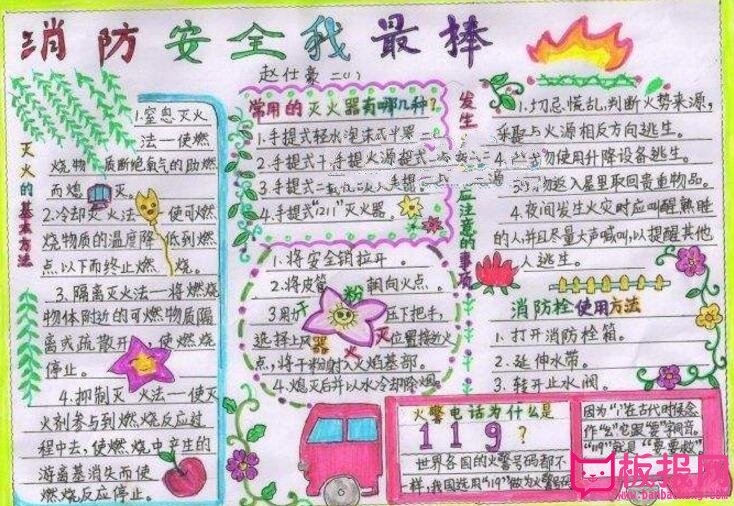 消防安全我最棒
赵仕豪 二(1)
灭火的基本方法
1.窒息灭火
法——使燃
烧物质断绝氧气的助燃
而熄灭。
2.冷却灭火法——使可燃
烧物质的温度降低到燃
点以下而终止燃烧。
3.隔离灭火法——将燃烧
物体附近的可燃物质隔
离或疏散开，使燃烧
停止。
4.抑制灭火法——使灭
火剂参与到燃烧反应过
程中去，使燃烧中产生的
游离基消失而使
燃烧反应停止。
常用的灭火器有哪几种？
1.手提式轻水泡沫灭火器
2.手提式干
3.手提式二
4.手提式"1211"灭火器。
干粉灭火器
1.将安全销拉开。
2.将皮管朝向火点。
3.用力压下把手，
选择上风位置接近火
点，将干粉射入火焰基部。
4.熄灭后并以水冷却除烟。
发生
应注意的事项
1.切忌慌乱，判断火势来源，
采取与火源相反方向逃生。
使用升降设备逃生。
返入屋里取回贵重物品。
4.夜间发生火灾时应叫醒熟睡
的人并且尽量大声喊叫，以提醒其他
人逃生。
消防栓使用方法
1.打开消防栓箱。
2.延伸水带。
3.转开止水阀。
火警电话为什么是
119？
世界各国的火警号码都不一
样，我国选用"119"做为火警号码
因为"1"在古代时候念
作"幺"，它跟"要"字同音。
"119"就是"要要救"
板报网
www.banbaowang.com